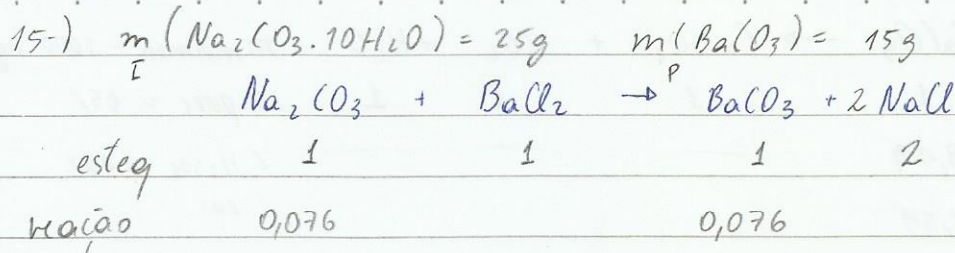 15-) m (Na₂CO₃.10H₂O) = 25g m(BaCO₃) = 15g
I P
Na₂CO₃ + BaCl₂ → BaCO₃ + 2 NaCl
esteq 1 1 1 2
reação 0,076 0,076